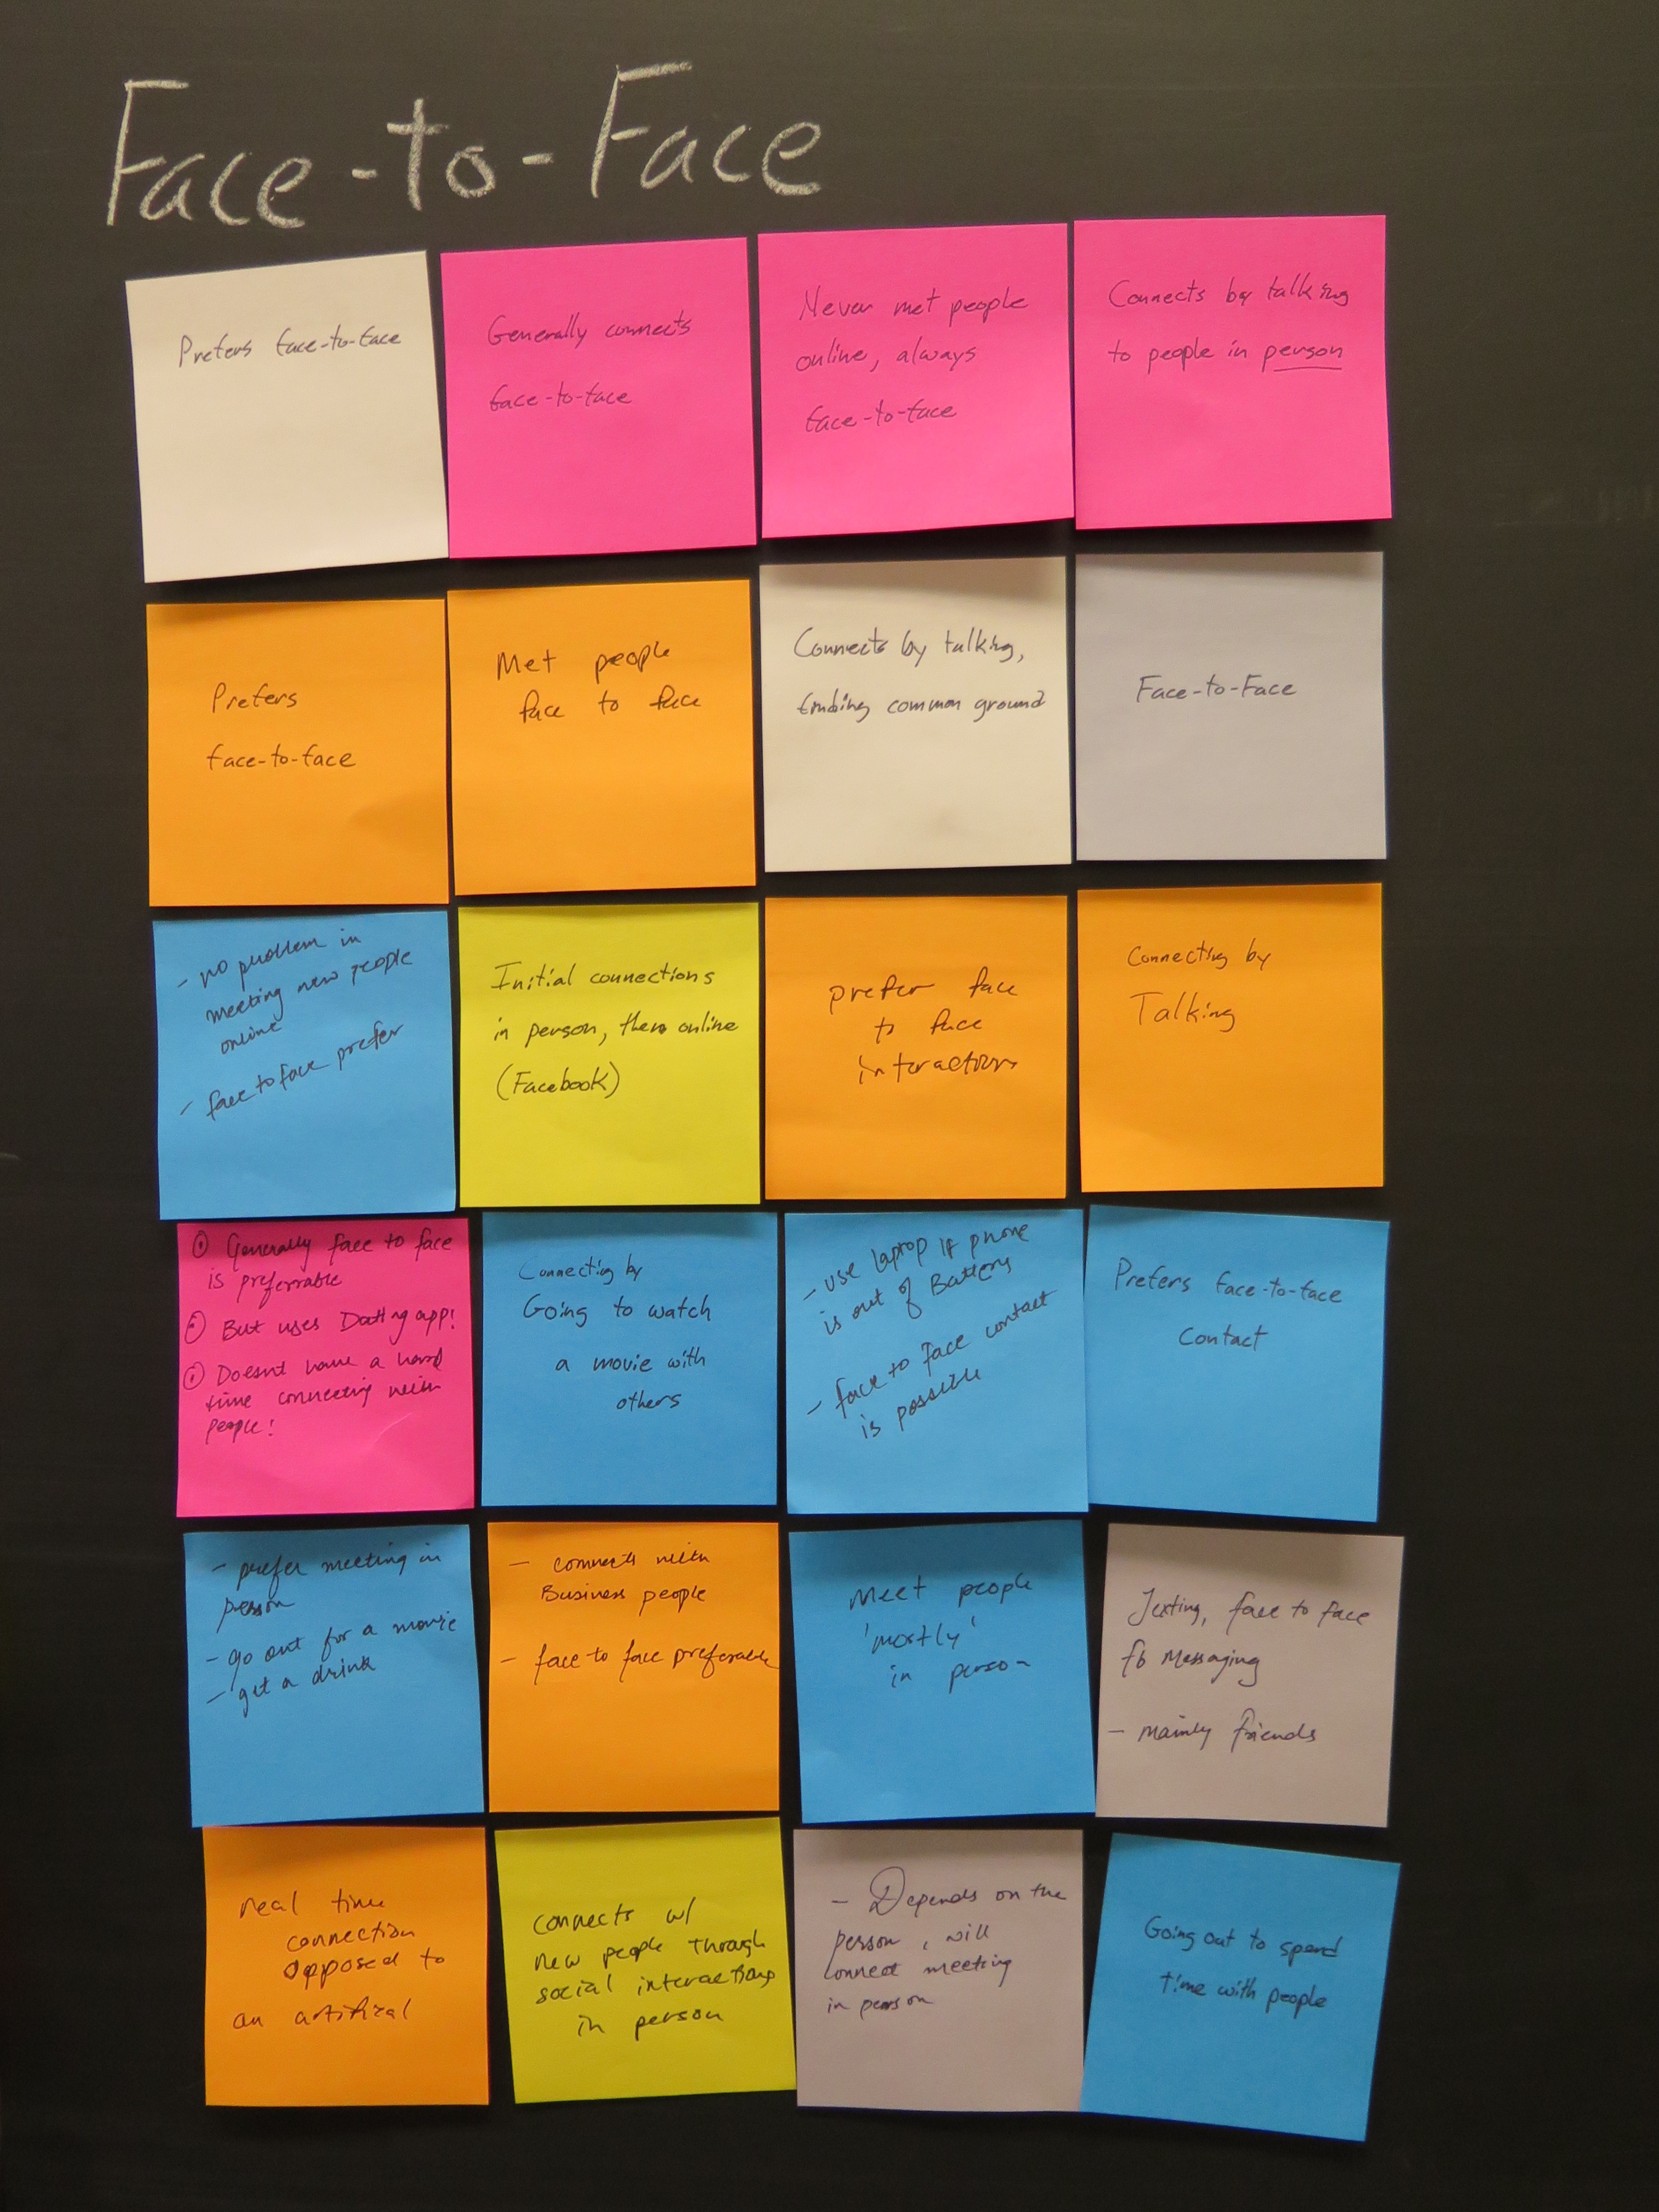 Face-to-Face
Prefers face-to-face
Generally connects
face-to-face
Never met people
online, always
face-to-face
Connects by talking
to people in person
Prefers
face-to-face
Met people
face to face
Connects by talking,
finding common ground
Face-to-Face
- no problem in
meeting new people
online
- face to face prefer
Initial connections
in person, then online
(Facebook)
prefer face
to face
interactions
Connecting by
Talking
Generally face to face
is preferrable
But uses Dating app!
Doesnt have a hard
time connecting with
people!
Connecting by
Going to watch
a movie with
others
- use laptop if phone
is out of Battery
- face to face contact
is possible
Prefers face-to-face
contact
- prefer meeting in
person
- go out for a movie
- get a drink
- connects with
Business people
- face to face preferable
Meet people
'mostly'
in person
Texting, face to face
fb Messaging
- mainly friends
real time
connection
opposed to
an artifical
connects w/
new people through
social interactions
in person
- Depends on the
person, will
connect meeting
in person
Going out to spend
time with people